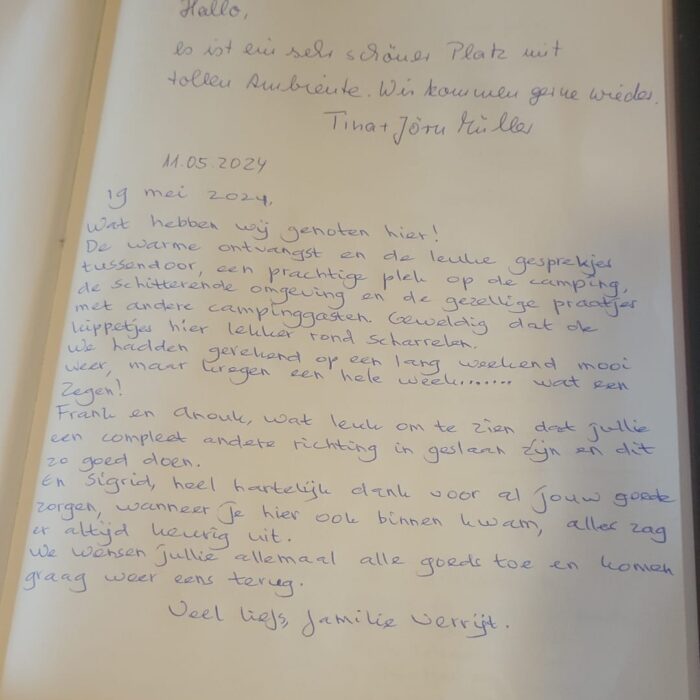 Hallo,
es ist ein sehr schöner Platz mit
tollen Ambiente. Wir kommen gerne wieder.
Tina + Jörn Müller
11.05.2024
19 mei 2024,
Wat hebben wij genoten hier!
De warme ontvangst en de leuke gesprekjes
tussendoor, een prachtige plek op de camping,
de schitterende omgeving en de gezellige praatjes
met andere campinggasten. Geweldig dat de
kippetjes hier lekker rond scharrelen.
We hadden gerekend op een lang weekend mooi
weer, maar kregen een hele week....... wat een
zegen!
Frank en Anouk, wat leuk om te zien dat jullie
een compleet andere richting in geslaan zijn en dit
zo goed doen.
En Sigrid, heel hartelijk dank voor al jouw goede
zorgen, wanneer je hier ook binnen kwam, alles zag
er altijd keurig uit.
We wensen jullie allemaal alle goeds toe en komen
graag weer eens terug.
Veel liefs, familie Verrijt.